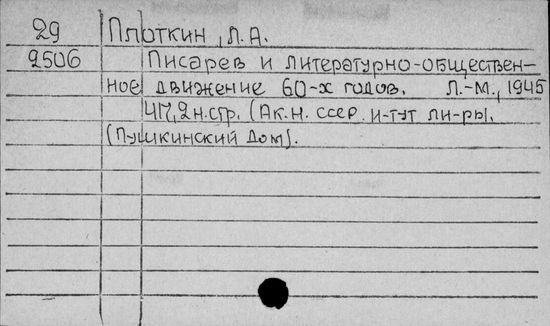 29 Плоткин, Л.А.
2506 Писарев и литературно-обществен-
ное движение 60-х годов. Л.-М., 1945
417,2н.стр. (Ак.н. СССР. и-тут ли-ры.
(Пушкинский Дом).